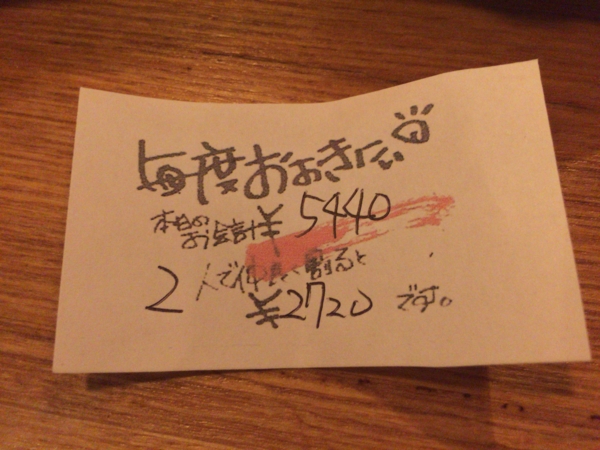 毎度おおきに
本日の
お会計 ¥5440
2人で仲良く割ると
¥2720 です。